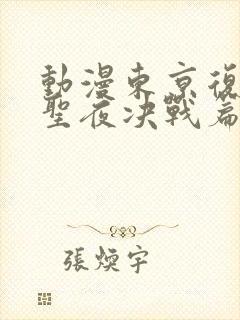 動漫東京復
聖夜決戰篇
張煥宇